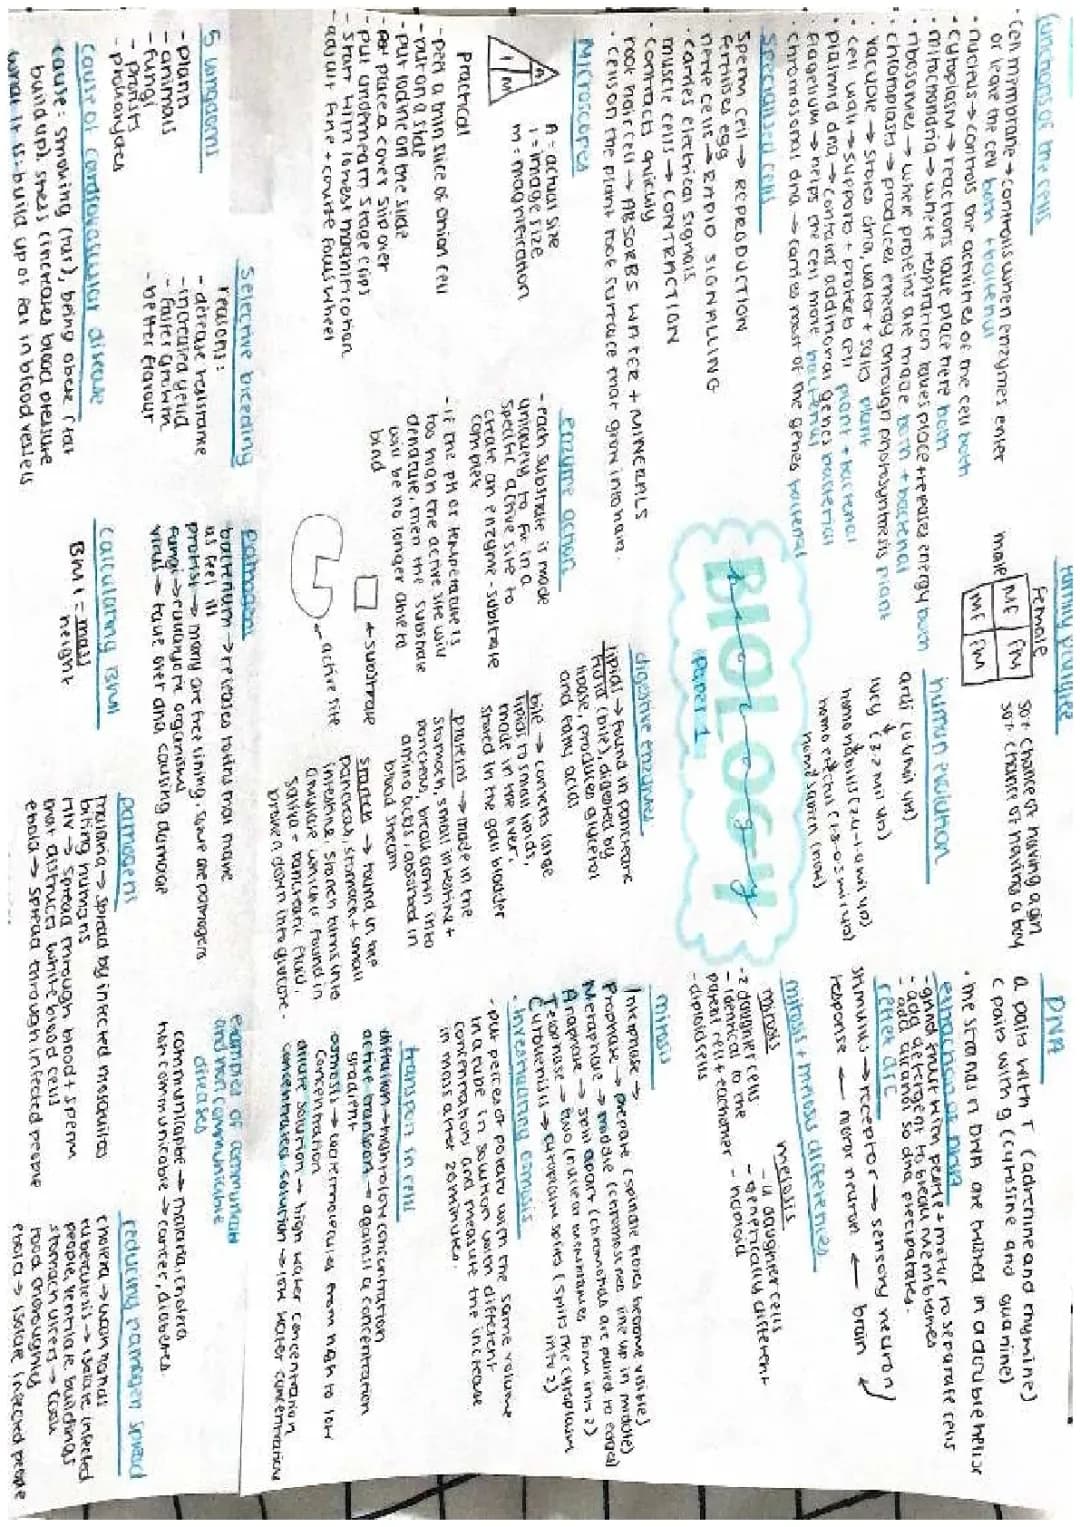 functions of the cells
· cell membrane → controls when enzymes enter
or leave the cell both + bacterial
· nucleus → controls the activities of the cell both
· cytoplasm → reactions take place here both
· mitochondria → where respiration takes place + releases energy both
· ribosomes → where proteins are made both + bacterial
· chloroplasts → produces energy through photosynthesis plant
· vacuole → stores dna, water + salts plant
· cell wall → supports + protects cell plant + bacterial
· plasmid dna → contains additional genes bacterial
· flagellum → helps the cell move bacterial
· chromosomal dna → carries most of the genes bacterial
specialised cells
sperm cell → REPRODUCTION
· fertilises egg
nerve cells → RAPID SIGNALLING
· carries electrical signals
muscle cells → CONTRACTION
· contracts quickly
root hair cell → ABSORBS WATER + MINERALS
· cells on the plant root surface that grow into hair.
Microscopes
A = actual size
I = image size
M = magnification
practical
- peel a thin slice of onion cell
- put on a slide
- put iodine on the slide
- place a cover slip over
- put underneath stage clips
- start with lowest magnification
- adjust fine + course focus wheel
family pedigree
female
male
MF FM
MF FM
50% chance of having a girl
50% chance of having a boy
human evolution
ardi (4.4 mil yr)
↓
lucy (3.2 mil yr)
homo habilis (2.4-1.4 mil yr)
homo erectus (1.8-0.5 mil yr)
homo sapien (now)
BIOLOGY
Paper 1
enzyme action
- each substrate is made
uniquely to fit in a
specific active site to
create an enzyme-substrate
complex
- if the pH or temperature is
too high the active site will
denature, then the substrate
will be no longer able to
bind
← substrate
active site
digestive enzymes
lipids → found in pancreatic
fluid (bile), digested by
lipase, produces glycerol
and fatty acids
bile → converts large
lipids to small lipids,
made in the liver,
stored in the gall bladder
proteins → made in the
stomach, small intestine +
pancreas, break down into
amino acids, absorbed in
blood stream
starch → found in the
pancreas, stomach + small
intestine, starch turns into
amylase which is found in
saliva + pancreatic fluid,
broken down into glucose.
DNA
a pairs with T (adenine and thymine)
c pairs with g (cytosine and guanine)
· the strands in DNA are twisted in a double helix
extraction of DNA
- grind fruit with pestle + mortar to separate cells
- add detergent to break membranes
- add alcohol so dna precipitates.
reflex arc
stimulus → receptor → sensory neuron
response ← motor neuron ← brain
mitosis + meiosis differences
mitosis
- 2 daughter cells
- identical to the
parent cell + eachother
- diploid cells
meiosis
- 4 daughter cells
- genetically different
- haploid
mitosis
Interphase →
Prophase → prepare (spindle fibres become visible)
Metaphase → middle (chromosomes line up in middle)
Anaphase → split apart (chromatids are pulled to edges)
Telophase → two (nuclear membranes form into 2)
Cytokenisis → cytoplasm splits (splits the cytoplasm into 2)
investigating osmosis
- put pieces of potato with the same volume
in a tube in solution with different
concentrations and measure the increase
in mass after 20 minutes.
transport in cell
diffusion → high to low concentration
active transport → against a concentration
gradient
osmosis → water molecules from high to low
concentration
dilute solution → high water concentration
concentrated solution → low water concentration
5 kingdoms
- plants
- animals
- fungi
- protists
- prokaryotes
Selective breeding
reasons:
- disease resistance
- increased yeild
- faster growth
- better flavour
pathogens
bacterium → releases toxins that make
us feel ill
protist → many are free living, some are pathogens
fungi → eukaryote organisms
virus → take over and causing damage
examples of communicable
and non communicable
diseases
communicable → malaria, cholera
non communicable → cancer, diabetes
cause of cardiovascular disease
cause: smoking (tar), being obese (fat
build up), stress (increases blood pressure
what it is - build up of fat in blood vessels
calculating BMI
BMI = mass
height
pathogens
malaria → spread by infected mosquitos
biting humans
HIV → spread through blood + sperm
that distructs white blood cells
ebola → spread through infected people
reducing pathogen spread
cholera → wash hands
tuberculosis → isolate infected
people, ventilate buildings
stomach ulcers → cook
food thoroughly
ebola → isolate infected people